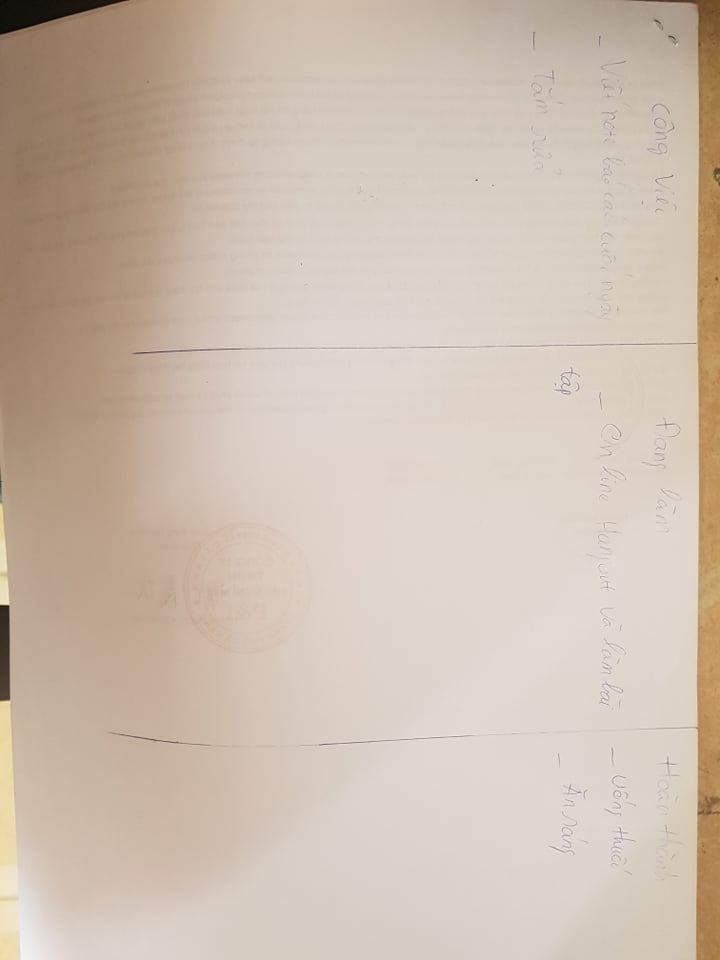 Công Việc
- Viết note báo cáo cuối ngày
- Tắm rửa
Đang làm
- On line Hangout và làm bài
tập
Hoàn thành
- Uống thuốc
- Ăn sáng